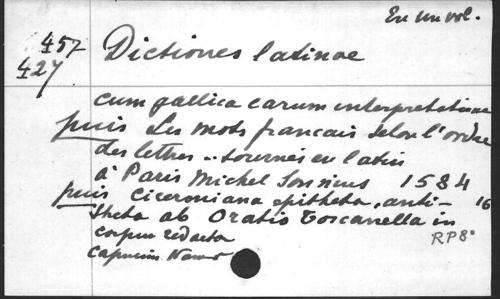 En un vol.
457 Dictiones latinae
427
cum gallica earum interpretatione
puis Les mots francais selon l'ordre
des lettres .. tournés en latin
à Paris Michel Sonnius 1584
puis Ciceroniana epitheta, anti- 16
theta ab Oratio Toscanella in
corpus redacta RP8°
Capucins